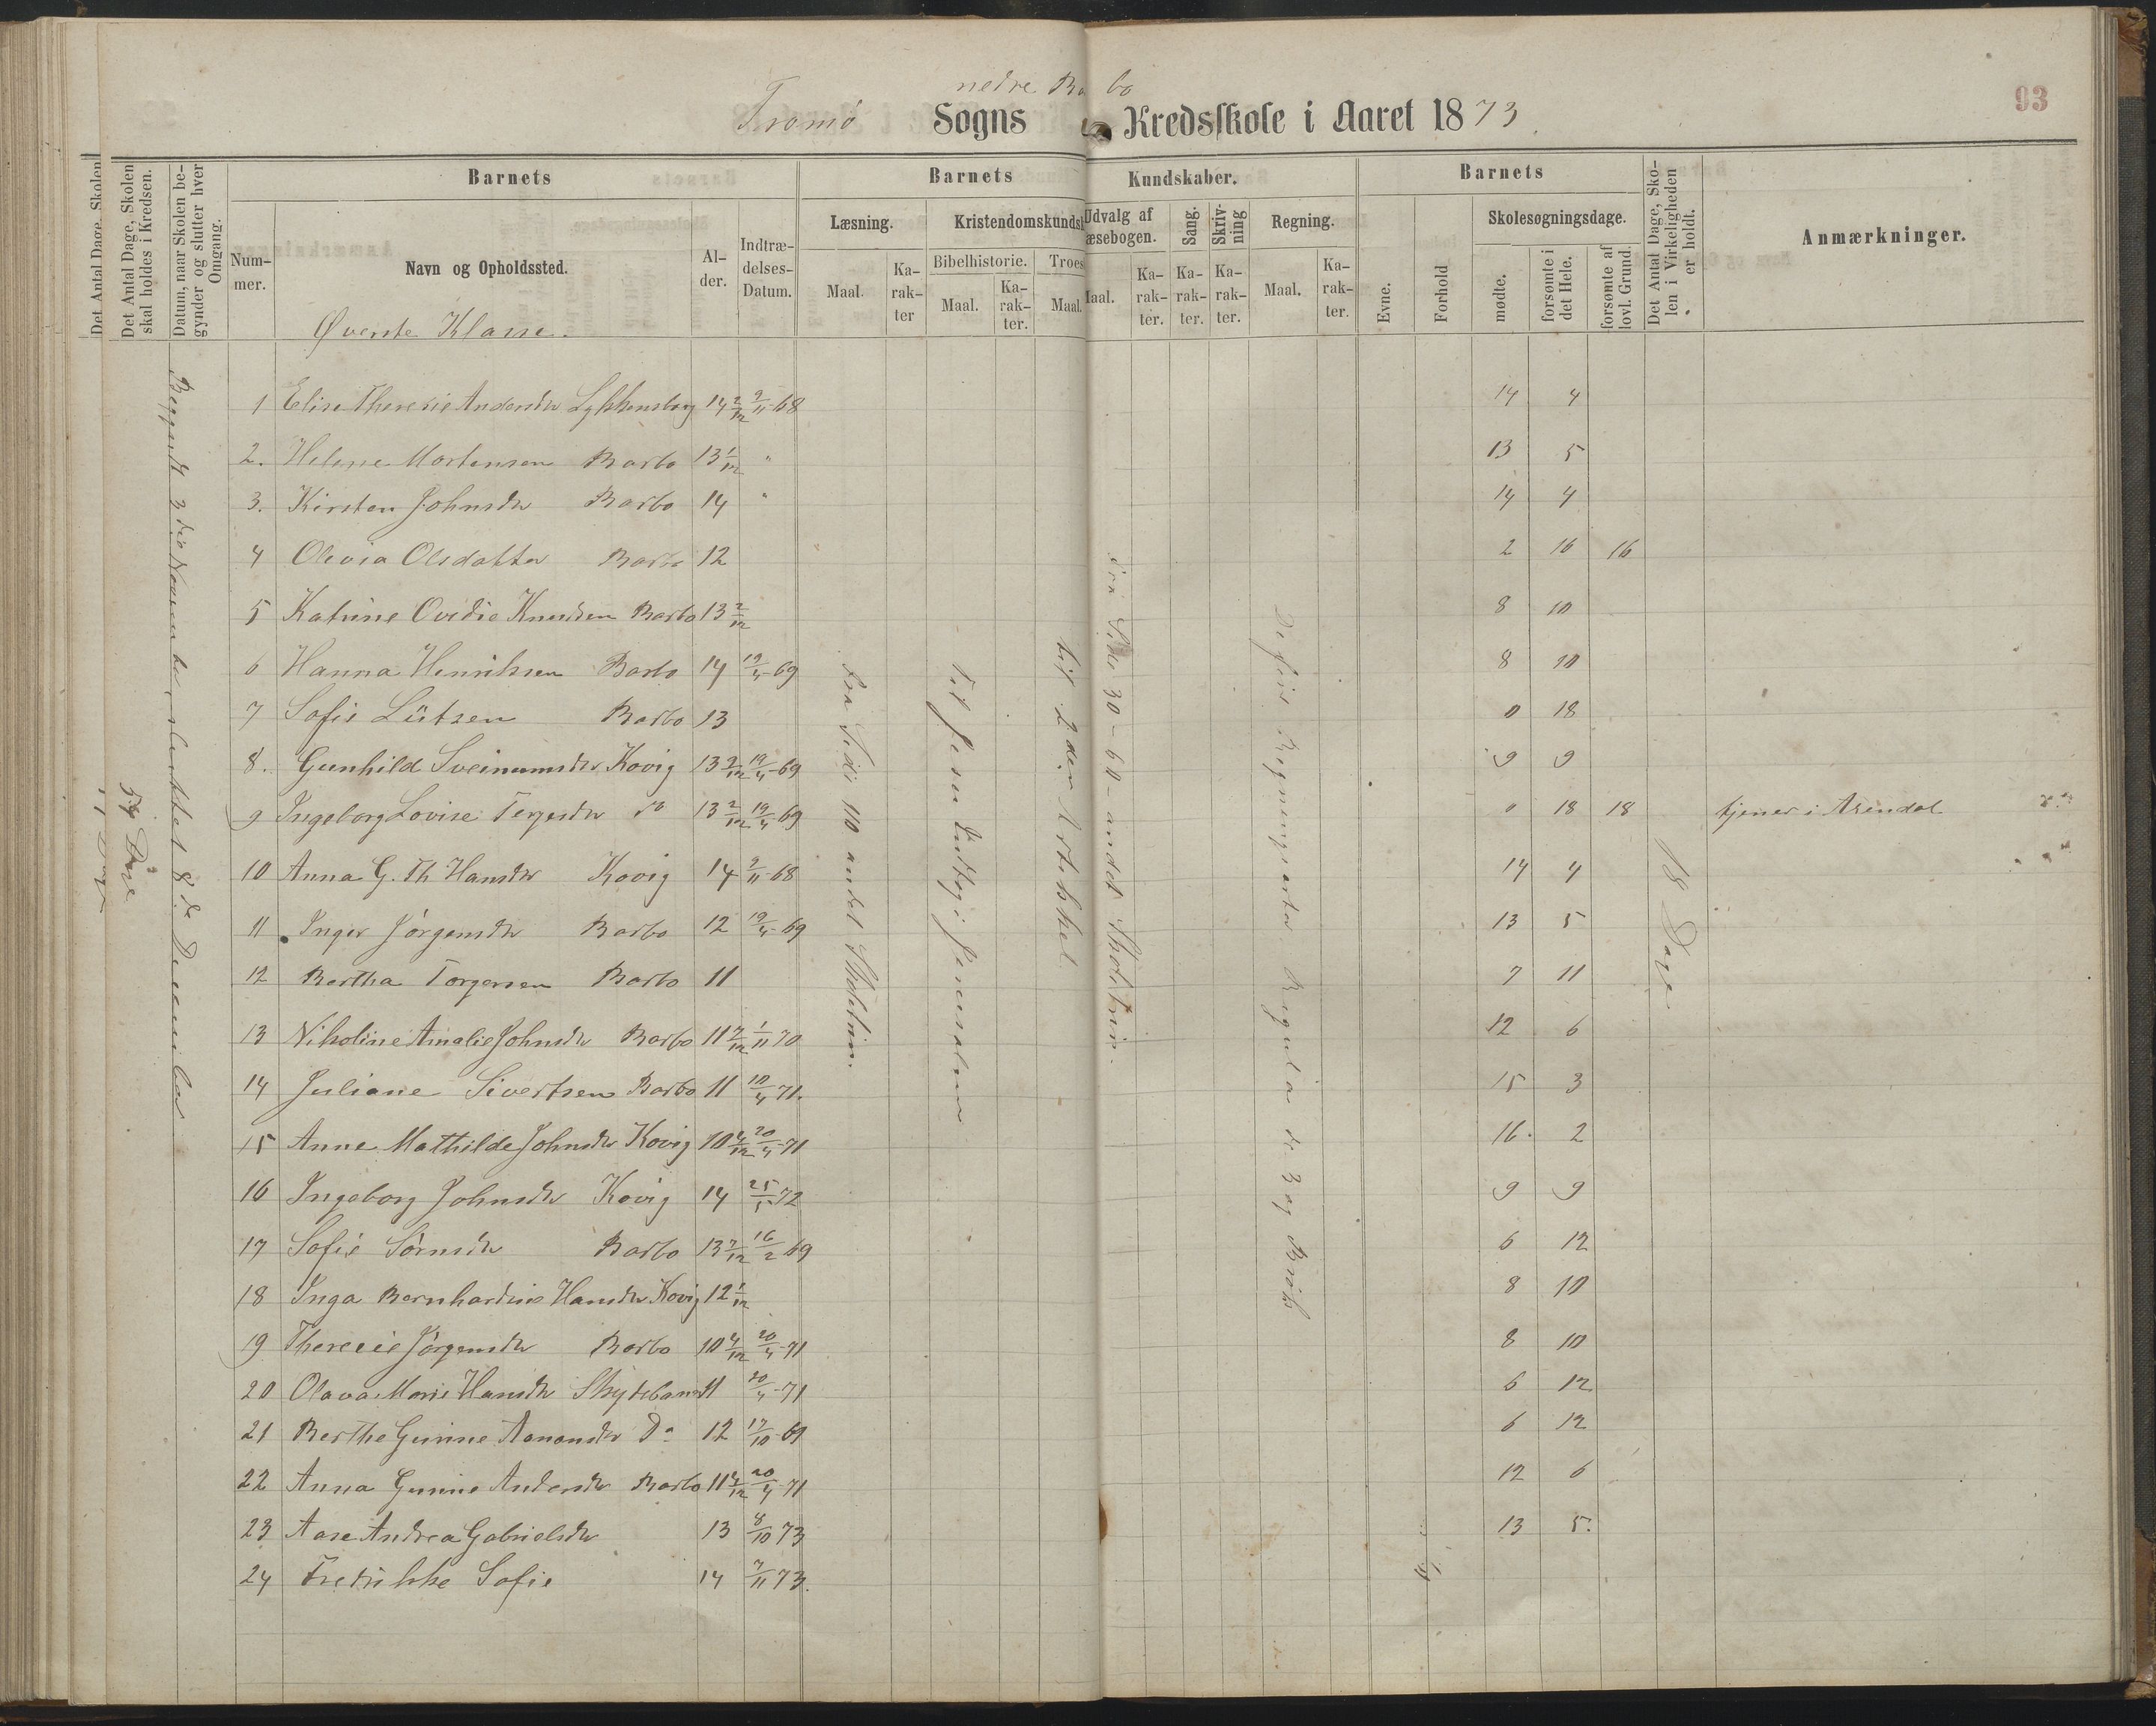 nedre Barbo
Tromø Sogns Kredsskole i Aaret 1873.
93
Det Antal Dage, Skolen
Det Antal Dage, Skolen skal holdes i Kredsen.
Datum, naar Skolen begynder og slutter hver Omgang.
Barnets
Barnets
Kundskaber.
Barnets
Det Antal Dage, Skolen i Virkeligheden er holdt.
Anmærkninger.
Nummer.
Navn og Opholdssted.
Alder.
Indtrædelses-Datum.
Læsning.
Kristendomskundsk
Udvalg af
æsebogen.
Sang.
Skrivning
Regning.
Evne.
Forhold
Skolesøgningsdage.
Maal.
Karakter
Bibelhistorie.
Troes
Maal.
Karakter.
Maal.
Maal.
Karakter.
Karakter.
Karakter.
Maal.
Karakter.
mødte.
forsømte i det Hele.
forsømte af lovl. Grund.
Øverste Klasse.
1 Elise Theresie Andersdtr Lykkensborg 14 2/12 9/11-68 14 4
2. Helene Mortensen Barbo 13 1/12 " 13 5
3. Kirsten Johnsdtr Barbo 14 " 14 4
4 Olevia Olsdatter Barbo 12 2 16 16
5 Katrine Ovedie Knudsen Barbo 13 2/12 8 10
6 Hanna Henriksen Barbo 14 19/4-69 8 10
7 Sofie Lützen Barbo 13 0 18
8. Gunhild Sveinumsdtr Kovig 13 2/12 19/4-69 9 9
9 Ingeborg Lovise Terjesdtr do 13 2/12 19/4-69 0 18 18 tjener i Arendal
10 Anna G. Th Hansdtr Kovig 14 9/11-68 14 4
11 Inger Jørgensdtr Barbo 12 19/4-69 13 5
12 Bertha Torgersen Barbo 11 7 11
13 Nikoline Amalie Johnsdtr Barbo 11 7/12 1/11 70 12 6
14 Juliane Sivertsen Barbo 11 10/4 71. 15 3
15 Anne Mathilde Johnsdtr Kovig 10 4/12 20/4-71 16. 2
16 Ingeborg Johnsdtr Kovig 14 25/5-72 9 9
17 Sofie Sørnsdtr Barbo 13 7/12 16/2 69 6 12
18 Inga Bernhardine Hansdtr Kovig 12 1/12 8 10
19 Theresie Jørgensdtr Barbo 10 4/12 20/4-71 8 10
20 Olava Marie Hansdtr 11 20/4-71 6 12
21 Berthe Gurine Aanonsdtr Do 12 17/10-69 6 12
22 Anna Gurine Andersdtr Barbo 11 4/12 20/4-71 12 6
23 Aase Andrea Gabrielsdtr 13 8/10 73 13 5.
24 Fredrikke Sofie 14 7/11 73.
Begyndt 3die November, sluttet 8de December
54 Dage
fra Side 110 andet Skoletrin.
Til Jesu Indtog i Jerusalem
til 2den Artikkel
fra Side 30-60- andet Skoletrin.
De fire Regningsarter Regula de 3 og Brøk
18 Dage